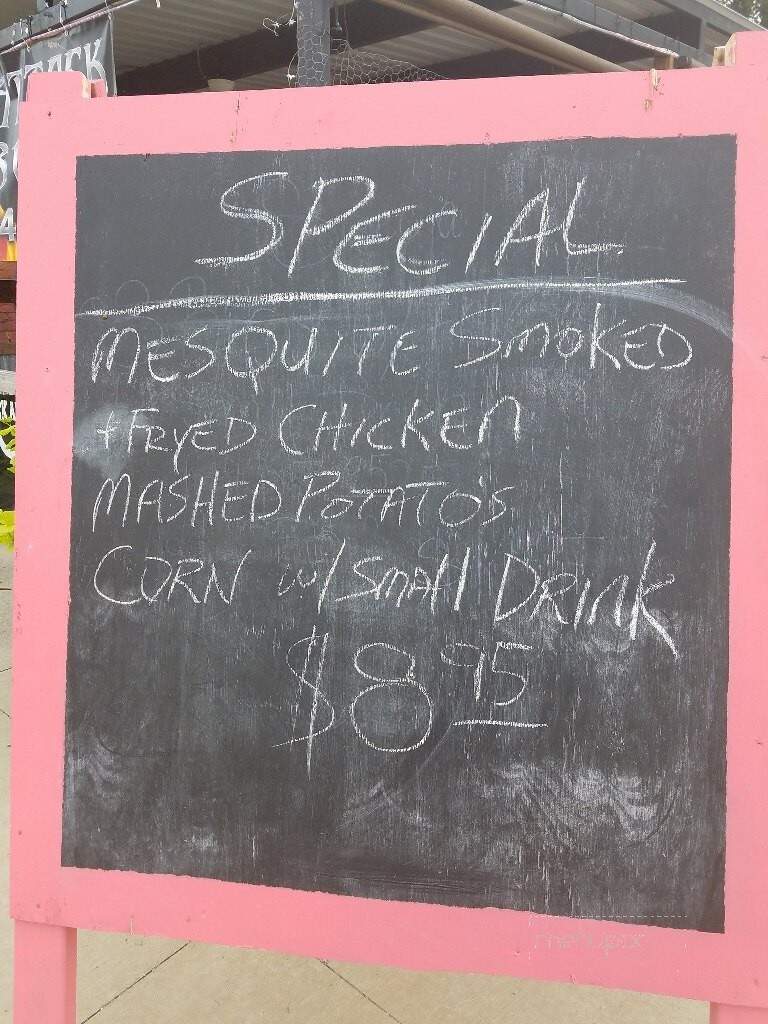 SPECIAL
MESQUITE SMOKED
+ FRYED CHICKEN
MASHED POTATO'S
CORN w/ SMAll DRINK
$8 95
menupix